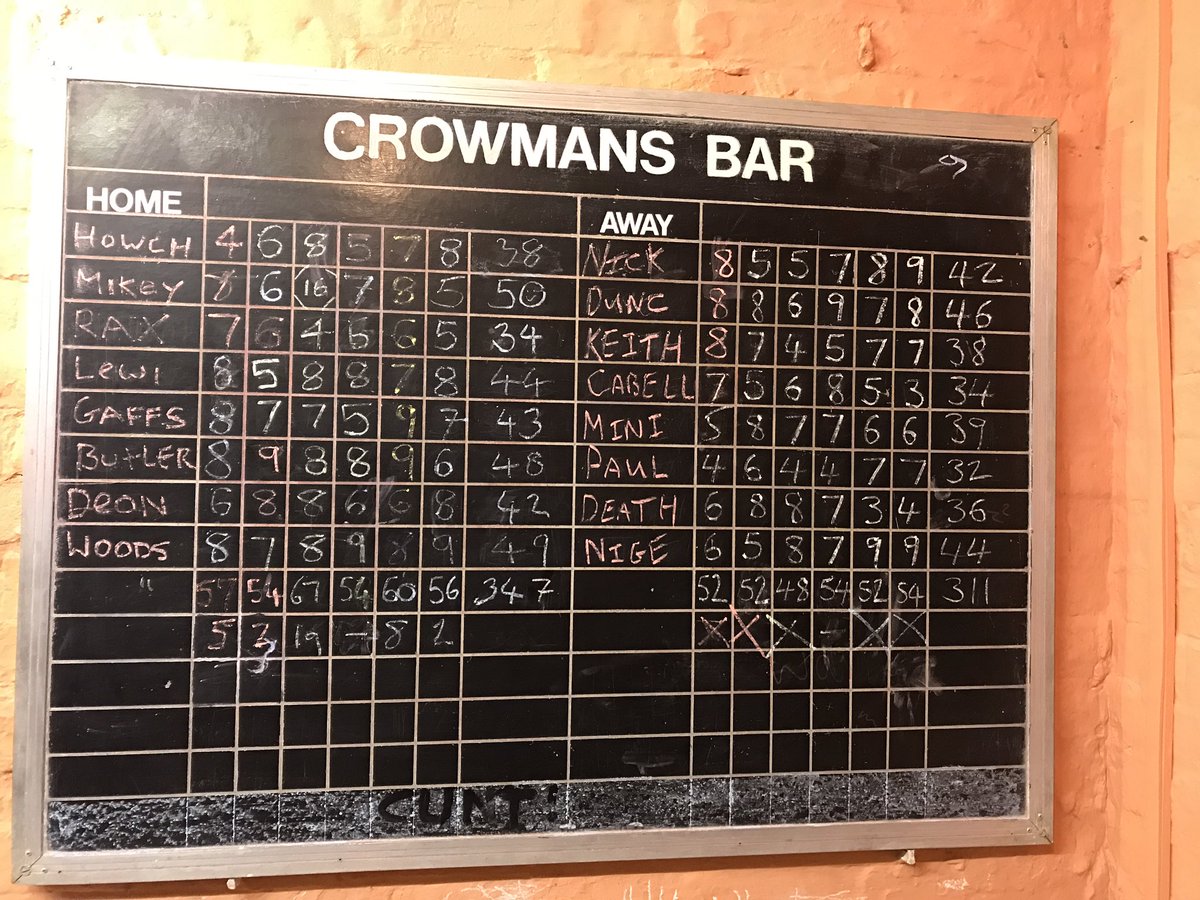 CROWMANS BAR
HOME AWAY
HOWCH 4 6 8 5 7 8 38 NICK 8 5 5 7 8 9 42
MIKEY 8 6 16 7 8 5 50 DUNC 8 8 6 9 7 8 46
RAX 7 6 4 6 6 5 34 KEITH 8 7 4 5 7 7 38
LEWI 8 5 8 8 7 8 44 CABELL 7 5 6 8 5 3 34
GAFFS 8 7 7 5 9 7 43 MINI 5 8 7 7 6 6 39
BUTLER 8 9 8 8 9 6 48 PAUL 4 6 4 4 7 7 32
DEON 6 8 8 6 6 8 42 DEATH 6 8 8 7 3 4 36
WOODS 8 7 8 9 8 9 49 NIGE 6 5 8 7 9 9 44
" 57 54 67 54 60 56 347 52 52 48 54 52 54 311
5 3 19 - 8 2 X X X - X X
CUNT!